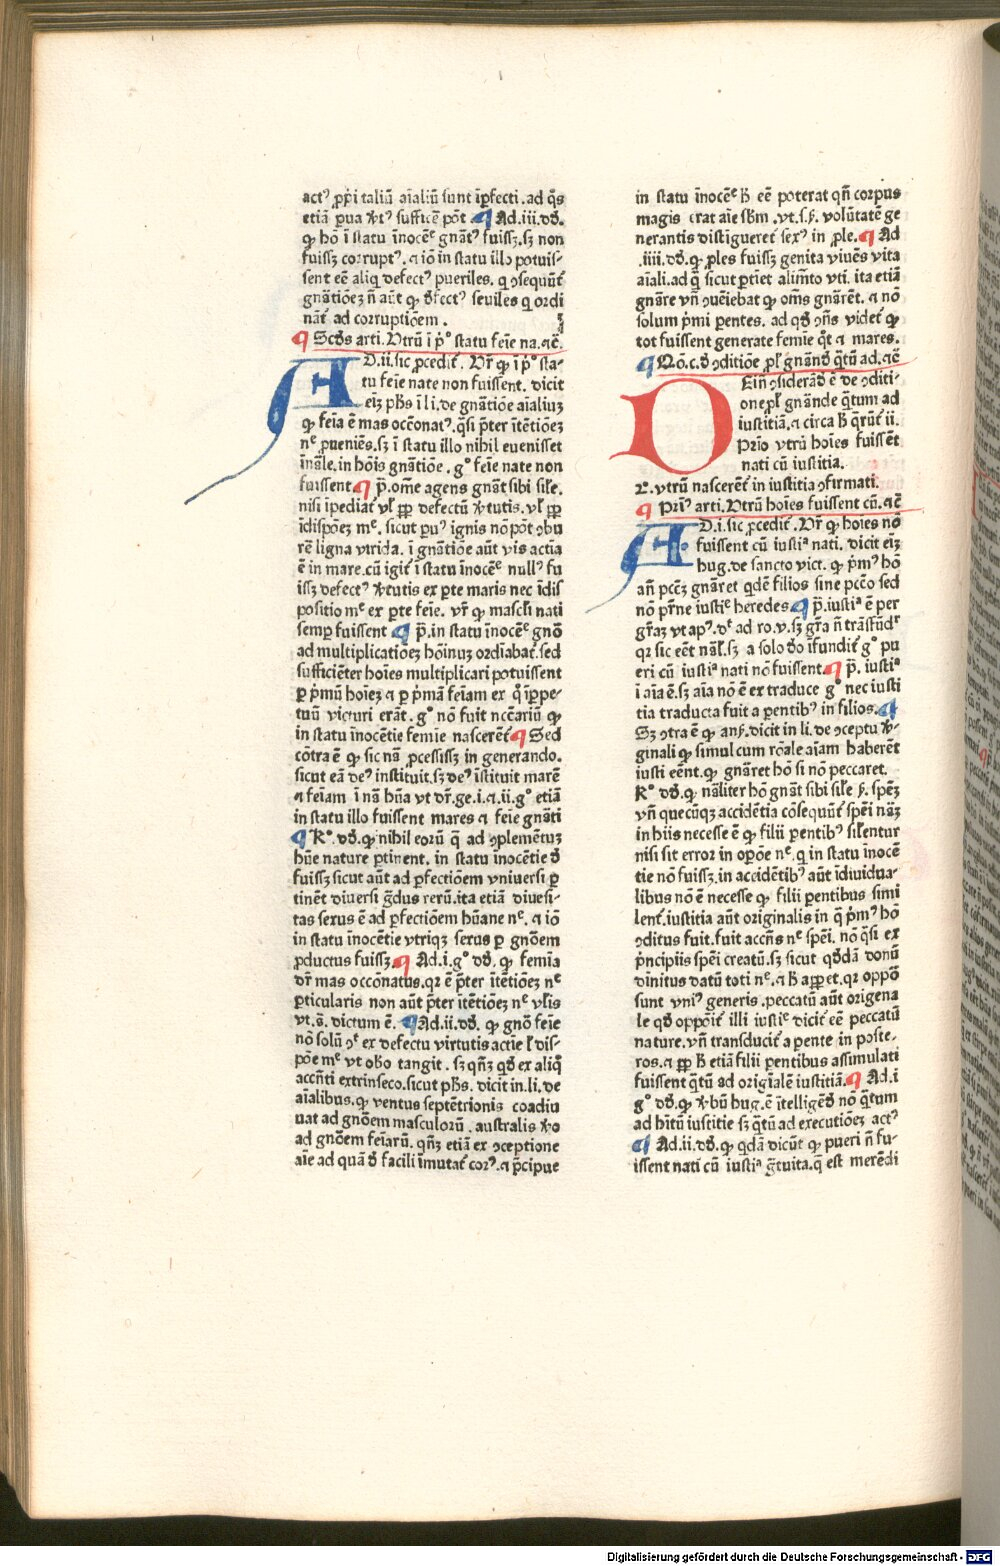 actꝰ ꝓpri taliũ aĩaliũ sunt ĩpfecti. ad qͥs
etiã ꝑua ꝟtꝰ suffi͛e põt ¶ Ad.iii.dõ.
ꝙ hõ ĩ statu ĩnocẽᵉ gnãtꝰ fuiss;.s; non
fuiss; corruptꝰ. ⁊ iõ in statu illo potuis-
sent eẽ aliq̃ defectꝰ pueriles. q̃ ↄsequũt͛
gnãtiõe; ñ aũt ꝙ dfectꝰ seuiles q̃ ordi
nãt͛ ad corruptiõem.
¶ Scds arti. Utrũ ĩ pͥº statu feĩe na.⁊ẽ.
AD.ii.sic ꝓcedit͛. Ur̃ ꝙ ĩ pͥº sta-
tu feĩe nate non fuissent. dicit
ei; phs ĩ li. de gnãtiõe aĩaliu;
ꝙ feĩa ẽ mas occõnatꝰ. q̃si pͥter ĩtẽtiõe;
nᵉ ꝓueniẽs. s; ĩ statu illo nihil euenisset
ĩnãle. in hõis gnãtiõe. gº feĩe nate non
fuissent ¶ p̃. ome agens gnãt sibi sil̃e.
nisi ĩpediat͛ vl̃ ꝓp̃ defectũ ꝟtutis. vl̃ ꝓp̃
ĩdispõe; mᵉ. sicut ꝑuꝰ ignis nõ põt ↄbu
rẽ ligna virida. ĩ gnãtiõe aũt vis actĩa
ẽ in mare. cũ igit͛ ĩ statu ĩnocẽᵉ nullꝰ fu
iss; defectꝰ ꝟtutis ex ꝑte maris nec ĩdis
positio mᵉ ex ꝑte feĩe. vr̃ ꝙ mascl̃i nati
semꝑ fuissent ¶ p̃. in statu ĩnocẽᵉ gnõ
ad multiplicatiõe; hõinu; ordĩabat͛. sed
sufficiẽter hoĩes multiplicari potuissent
ꝑ pͥmũ hoĩe; ⁊ ꝑ pͥmã feĩam ex qͥ ĩꝑpe-
tuũ victuri erãt. gº nõ fuit nccẽariũ ꝙ
in statu ĩnocẽtie femie nascerẽt͛ ¶ Sed
cõtra ẽ ꝙ sic nã ꝓcessiss; in generando.
sicut eã deꝰ instituit. s; deꝰ ĩstituit marẽ
⁊ feĩam ĩ nã hũa vt dr̃. ge.i.⁊.ii. gº etiã
in statu illo fuissent mares ⁊ feĩe gnãti
¶ Rº. dõ. ꝙ nihil eorũ q̃ ad ↄplemẽtu;
hũe nature ꝑtinent. in statu ĩnocẽtie d̃
fuiss; sicut aũt ad ꝑfectiõem vniuersi ꝑ
tinẽt diuersi g̃dus rerũ. ita etiã diuersi-
tas sexus ẽ ad ꝑfectiõem hũane nᵉ. ⁊ iõ
in statu ĩnocẽtie vtriq; sexus ꝑ gnõem
ꝓductus fuiss;. ¶ Ad.i. gº dõ. ꝙ femĩa
dr̃ mas occõnatus. qr ẽ pͥter ĩtẽtiõe; nᵉ
ꝑticularis non aũt pͥter ĩtẽtiõe; nᵉ vl̃is
vt.s̃. dictum ẽ. ¶ Ad.ii.dõ. ꝙ gnõ feĩe
nõ solũ ↄᵗ ex defectu virtutis actie l̃ dis-
põe mᵉ vt obõ tangit. s; qñ; qd̃ ex aliq̃
accñti extrinseco. sicut phs. dicit in.li. de
aĩalibus. ꝙ ventus septẽtrionis coadiu
uat ad gnõem masculorũ. australis ꝟo
ad gnõem feĩarũ. qñ; etiã ex ↄceptione
aĩe ad quã d̃ facili ĩmutat͛ corꝰ. ⁊ pͥcipue
in statu ĩnocẽᵉ h̃ eẽ poterat qñ corpus
magis erat aĩe sb̃m. vt. s. ẜ. volũtatẽ ge
nerantis distĩgueret͛ sexꝰ in ꝓle. ¶ Ad
.iiii.dõ. ꝙ ꝓles fuiss; genita viuẽs vita
aĩali. ad q̃ sicut ꝑtĩet alim̃to vti. ita etiã
gnãre vñ ↄuẽiebat ꝙ om̃s gnãrẽt. ⁊ nõ
solum pͥmi ꝑentes. ad qd̃ ↄñs videt͛ ꝙ
tot fuissent generate femie qͦt ⁊ mares.
¶ Nõ.c. d̃ ↄditiõe ꝓl̃ gnãnd̃ q̃tũ ad.⁊ẽ
DEiñ ↄsiderãd̃ ẽ de ↄditi-
one ꝓl̃ gnãnde q̃tum ad
iustitiã. ⁊ circa h̃ q̃rũt͛ ii.
Pͥrĩo vtrũ hoĩes fuissẽt
nati cũ iustitia.
2. vtrũ nascerẽt͛ in iustitia ↄfirmati.
¶ Pͥriꝰ arti. Utrũ hoĩes fuissent cũ.⁊ẽ
AD.i. sic ꝓcedit͛. Ur̃ ꝙ hoĩes nõ
fuissent cũ iustiᵃ nati. dicit ei;
hug. de sancto vict. ꝙ pͥmꝰ hõ
añ pcc̃; gnãret qdẽ filios sine pcc̃o sed
nõ pr̃ne iustiᵉ heredes ¶ p̃. iustiᵃ ẽ per
gr̃a; vt apꝰ. dᵗ ad ro.v. s; gr̃a ñ trãsfũd͛
qr sic eẽt nãl̃. s; a solo do ĩfundit͛ gº pu
eri cũ iustiᵃ nati nõ fuissent. ¶ p̃. iustiᵃ
ĩ aĩa ẽ. s; aĩa nõ ẽ ex traduce gº nec iusti
tia traducta fuit a ꝑentibꝰ in filios. ¶
S; ↄtra ẽ ꝙ anẜ. dicit in li. de ↄceptu ꝟ-
ginali ꝙ simul cum rõale aĩam haberẽt
iusti eẽnt. ꝙ gnãret hõ si nõ peccaret.
Rº dõ. ꝙ nãliter hõ gnãt sibi sil̃e ẜ. spẽ;
vñ quecũq; accidẽtia cõsequũt͛ spẽi nã;
in hiis necesse ẽ ꝙ filii ꝑentibꝰ sil̃entur
nisi sit error in oꝑõe nᵉ. q̃ in statu ĩnocẽ
tie nõ fuiss;. in accidẽtibꝰ aũt ĩdiuidua-
libus nõ ẽ necesse ꝙ filii ꝑentibus simi
lent͛. iustitia aũt originalis in q̃ pͥmꝰ hõ
ↄditus fuit. fuit accñs nᵉ spẽi. nõ q̃si ex
pͥncipiis spẽi creatũ. s; sicut qd̃dã donũ
diuinitus datũ toti nᵉ. ⁊ h̃ apꝑet. qr oppõ
sunt vniꝰ generis. peccatũ aũt origena
le qd̃ oppõit͛ illi iustiᵉ dicit͛ eẽ peccatũ
nature. vñ transducit͛ a ꝑente in poste-
ros. ⁊ ꝓp̃ h̃ etiã filii ꝑentibus assimulati
fuissent q̃tũ ad origĩalẽ iustitiã. ¶ Ad.i
gº dõ. ꝙ ꝟbũ hug. ẽ ĩtelligẽd̃ nõ q̃tum
ad hĩtũ iustitie s; q̃tũ ad executiõe; actꝰ
¶ Ad.ii.dõ. ꝙ qdã dicũt ꝙ pueri ñ fu-
issent nati cũ iustiᵃ g̃tuita. q̃ est merẽdi
Digitalisierung gefördert durch die Deutsche Forschungsgemeinschaft - DFG